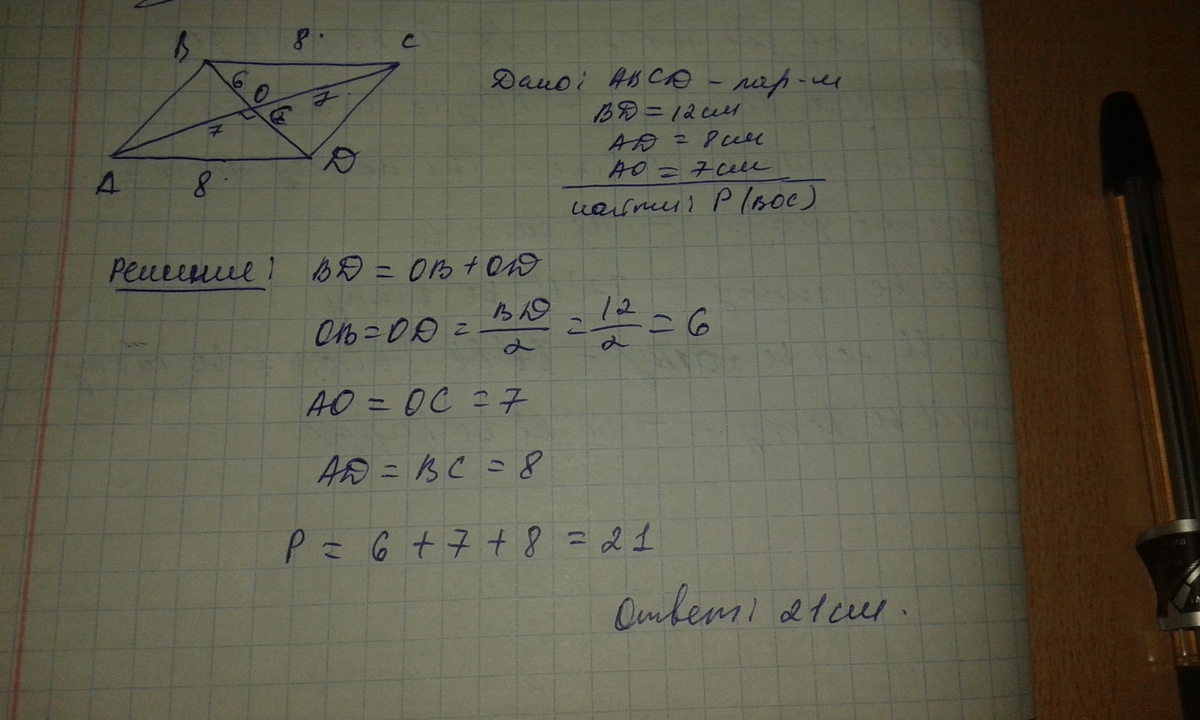 B 8 C
6 O 7
7 6
A 8 D
Дано: ABCD - пар-м
BD = 12 см
AD = 8 см
AO = 7 см
найти: P (BOC)
Решение: BD = OB + OD
OB = OD = BD/2 = 12/2 = 6
AO = OC = 7
AD = BC = 8
P = 6 + 7 + 8 = 21
Ответ: 21 см.